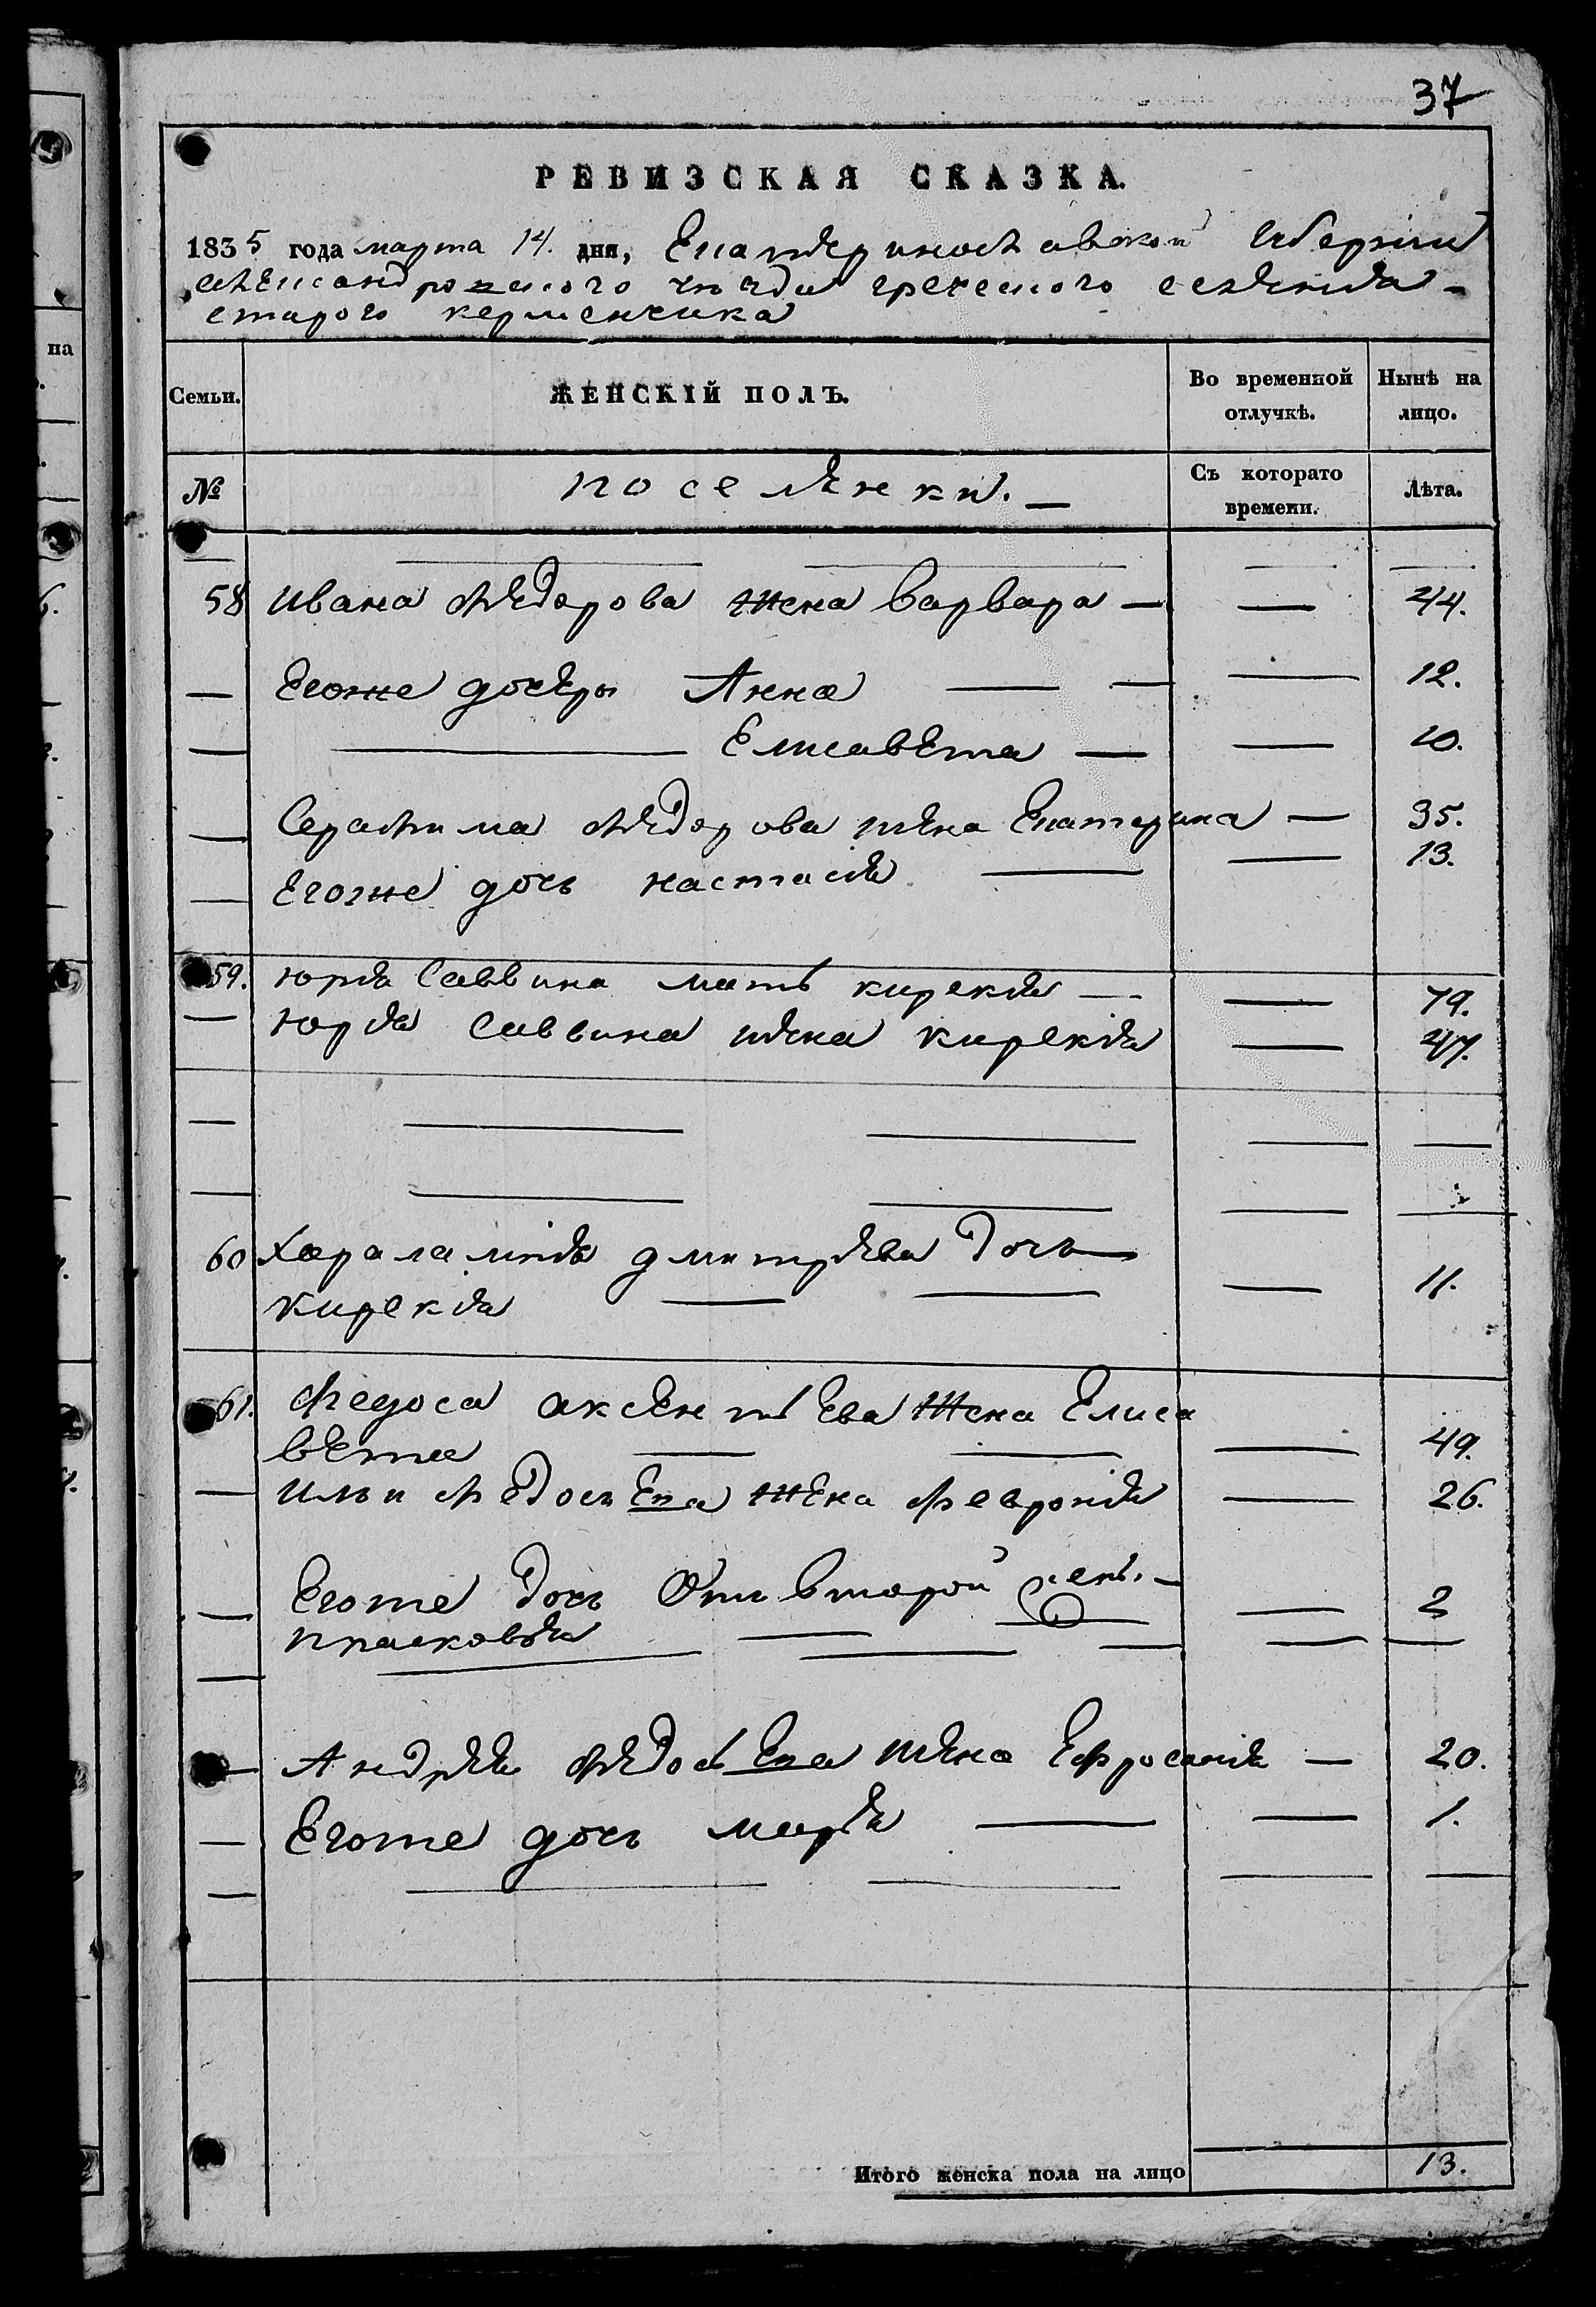 37
РЕВИЗСКАЯ СКАЗКА.
1835 года марта 14. дня, Екатеринославской Губернiи
Александровского уезда греческого селения
старого керменчика
Семьи. ЖЕНСКIЙ ПОЛЪ. Во временной отлучкѣ. Нынѣ на лицо.
№ поселенки. — Съ которато времени. Лѣта.
58 Ивана Федорова жена Варвара — — 44.
— Егоже дочеры Анна — — — 12.
— — Елисавета — — 10.
— Серафима Федорова жена Екатерина — 35.
— Егоже дочь настасия — — 13.
59. юрия Саввина мать кирекия — — 79.
— юрия Саввина жена кирекiя — 47.
60 Харалампия дмитриева дочь
кирекия — — — 11.
61. Федоса аксентьева жена Елиса
вета — — — 49.
— Ильи Федосъева жена Феврония — 26.
— Егоже дочь Отъ второй жены. —
прасковия — — — 2
— Андрея Федосьева жена Ефросинiя — 20.
— Егоже дочь мария — — 1.
Итого женска пола на лицо 13.